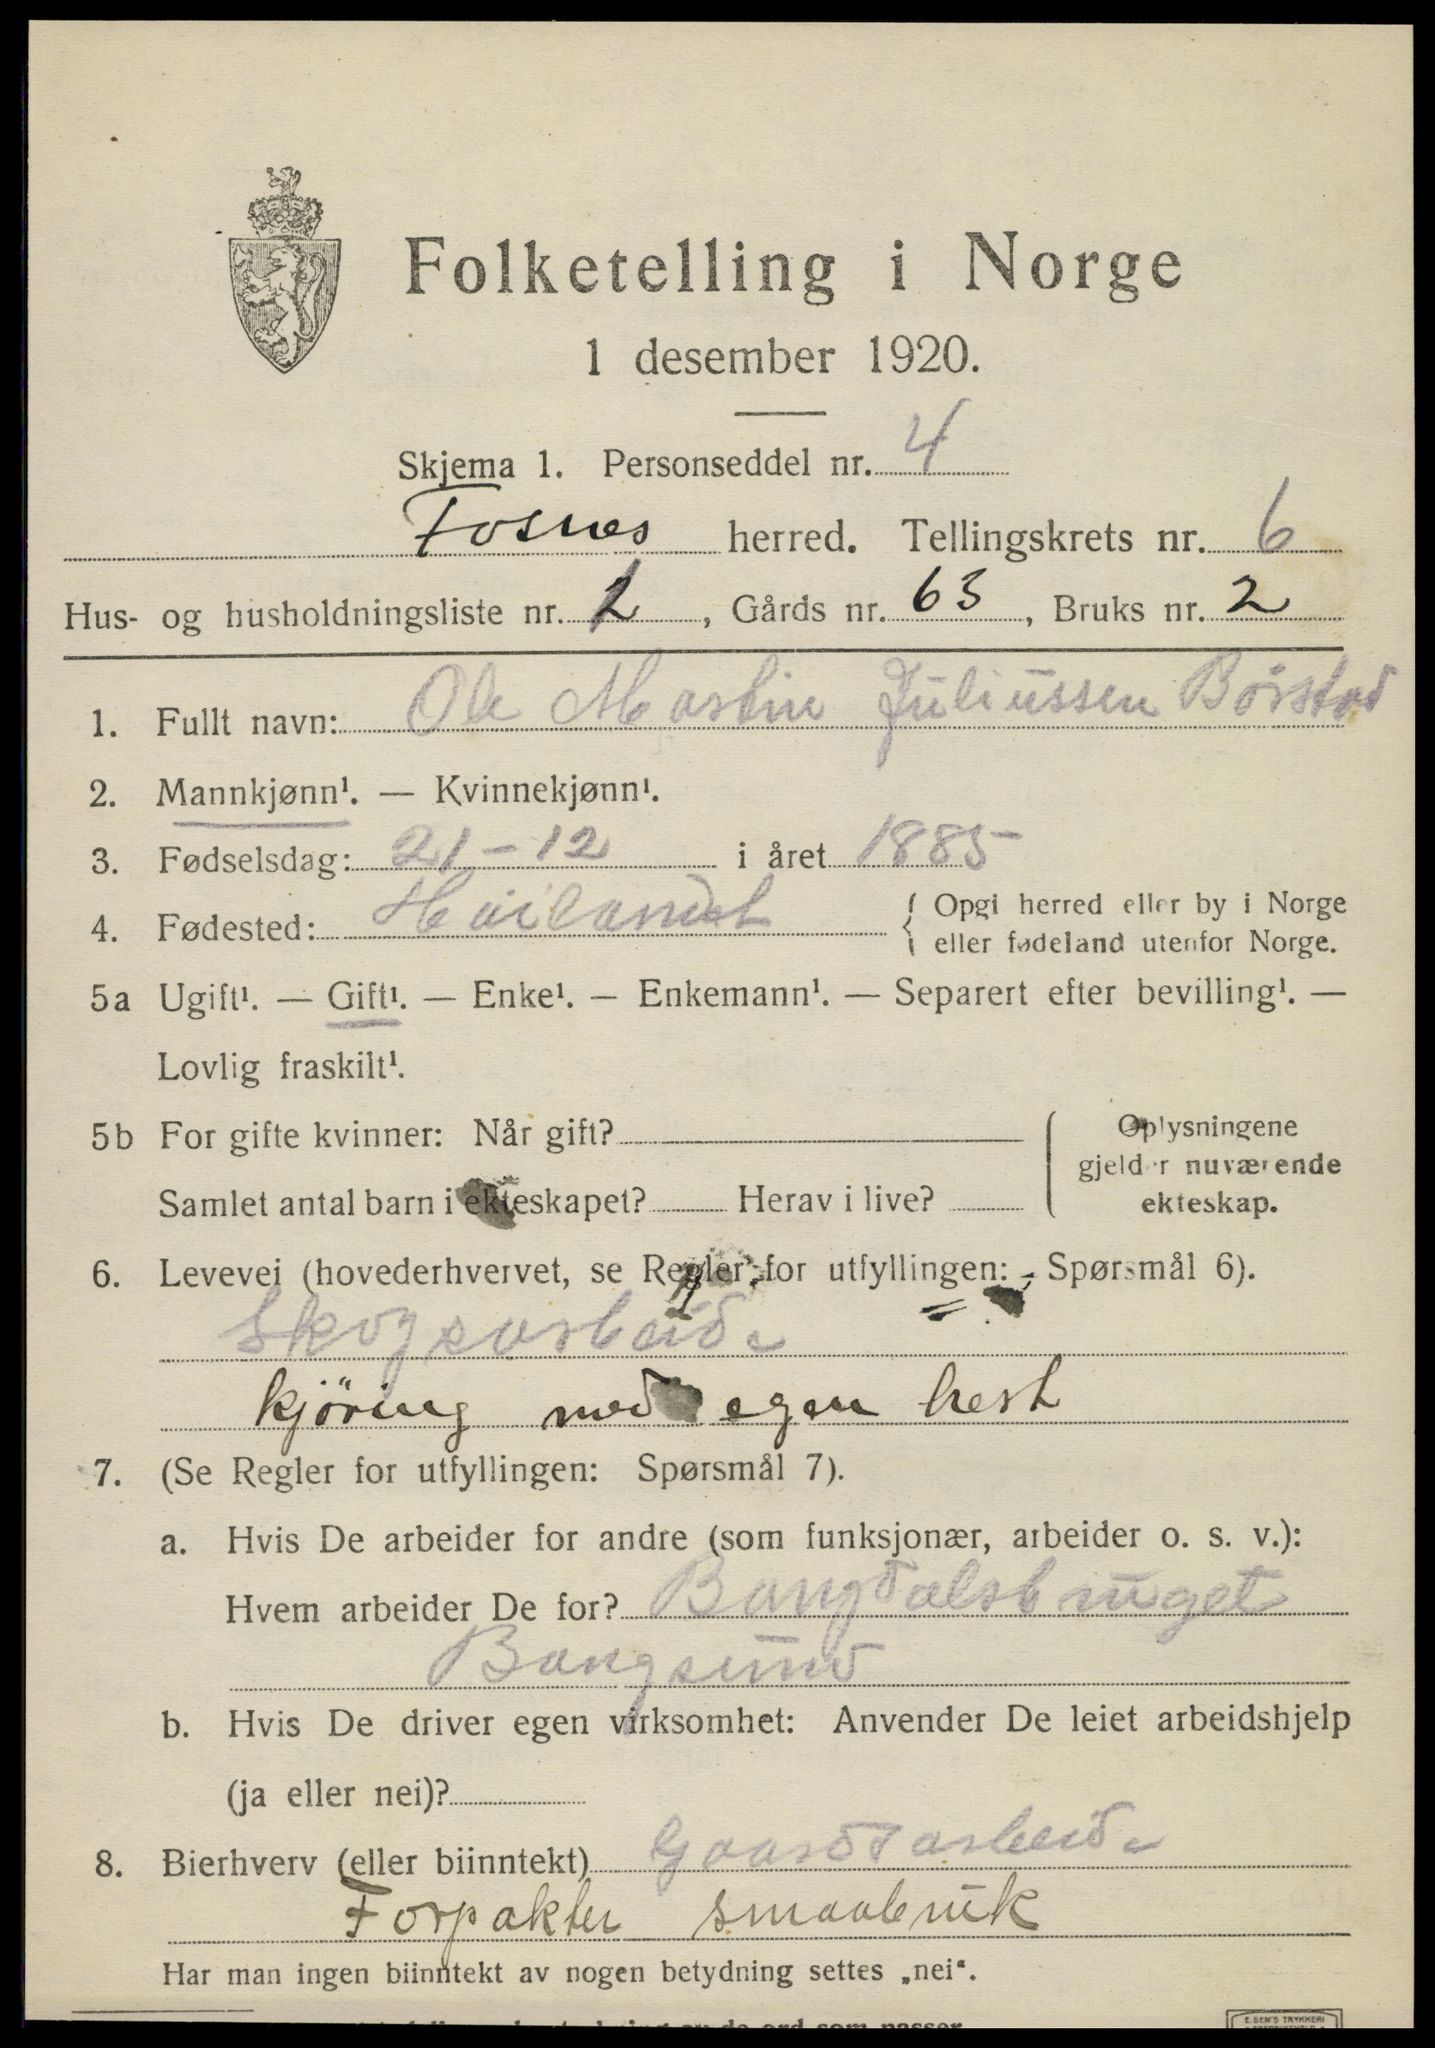 Folketelling i Norge
1 desember 1920.
Skjema 1. Personseddel nr. 4
Fosnes herred. Tellingskrets nr. 6
Hus- og husholdningsliste nr. 1, Gårds nr. 63, Bruks nr. 2
1. Fullt navn: Ole Martin Juliussen Børstad
2. Mannkjønn¹. — Kvinnekjønn¹.
3. Fødselsdag: 21-12 i året 1885
4. Fødested: Høilandet { Opgi herred eller by i Norge
eller fødeland utenfor Norge.
5a Ugift¹. — Gift¹. — Enke¹. — Enkemann¹. — Separert efter bevilling¹. —
Lovlig fraskilt¹.
5b For gifte kvinner: Når gift?
Samlet antal barn i ekteskapet? Herav i live?
Oplysningene
gjelder nuværende
ekteskap.
6. Levevei (hovederhvervet, se Regler for utfyllingen: Spørsmål 6).
Skogsarbeide
kjöring med egen hest
7. (Se Regler for utfyllingen: Spørsmål 7).
a. Hvis De arbeider for andre (som funksjonær, arbeider o. s. v.):
Hvem arbeider De for? Bangdalsbruget
Bangsund
b. Hvis De driver egen virksomhet: Anvender De leiet arbeidshjelp
(ja eller nei)?
8. Bierhverv (eller biinntekt) Gaardsarbeide
Forpakter smaabruk
Har man ingen biinntekt av nogen betydning settes „nei“.
av de ord som passer
E. SEM'S TRYKKERI